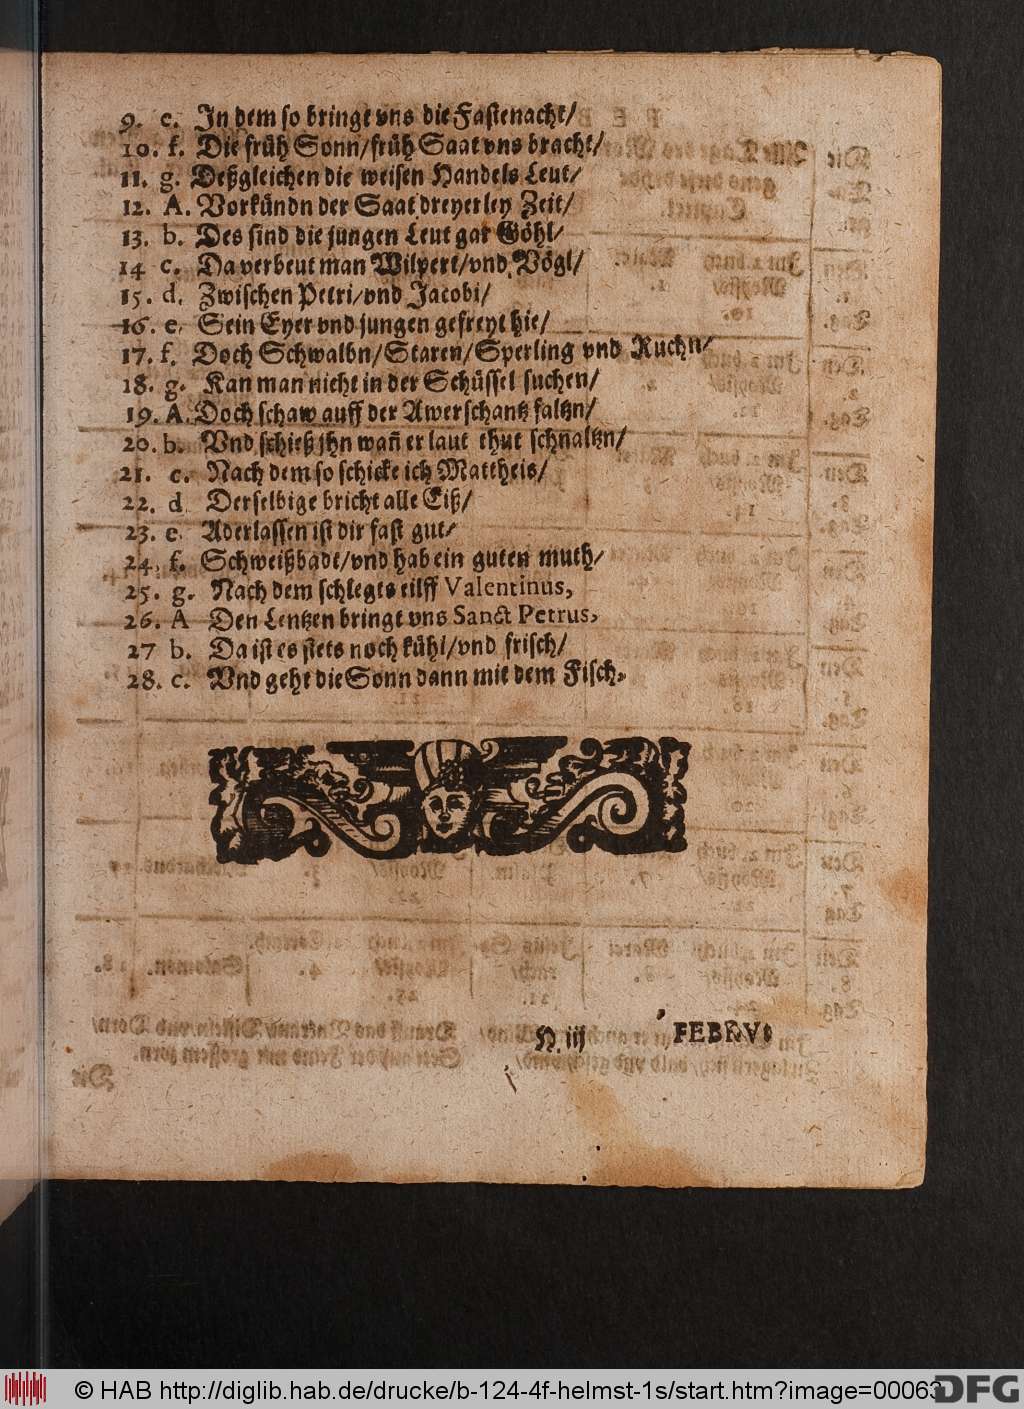 9. e. In dem so bringt vns die Fastenacht/
10. f. Die früh Sonn/früh Saat vns bracht/
11. g. Deßgleichen die weisen Handels Leut/
12. A. Vorkündn der Saat dreyerley Zeit/
13. b. Des sind die jungen Leut gar Göhl/
14 c. Da verbeut man Wilpert/vnd Vögl/
15. d. Zwischen Petri/vnd Jacobi/
16. e. Sein Eyer vnd jungen gefreyt hie/
17. f. Doch Schwalbn/Staren/Sperling vnd Ruchn/
18. g. Kan man nicht in der Schüssel suchen/
19. A. Doch schaw auff der Awerschantz faltzn/
20. b. Vnd schieß jhn wañ er laut thut schnaltzn/
21. c. Nach dem so schicke ich Mattheis/
22. d Derselbige bricht alle Eiß/
23. e. Aderlassen ist dir fast gut/
24. f. Schweißbadt/vnd hab ein guten muth/
25. g. Nach dem schlegts eilff Valentinus,
26. A Den Lentzen bringt vns Sanct Petrus,
27 b. Da ist es stets noch kühl/vnd frisch/
28. c. Vnd geht die Sonn dann mit dem Fisch.
H iij FEBRV-
© HAB http://diglib.hab.de/drucke/b-124-4f-helmst-1s/start.htm?image=00063
DFG